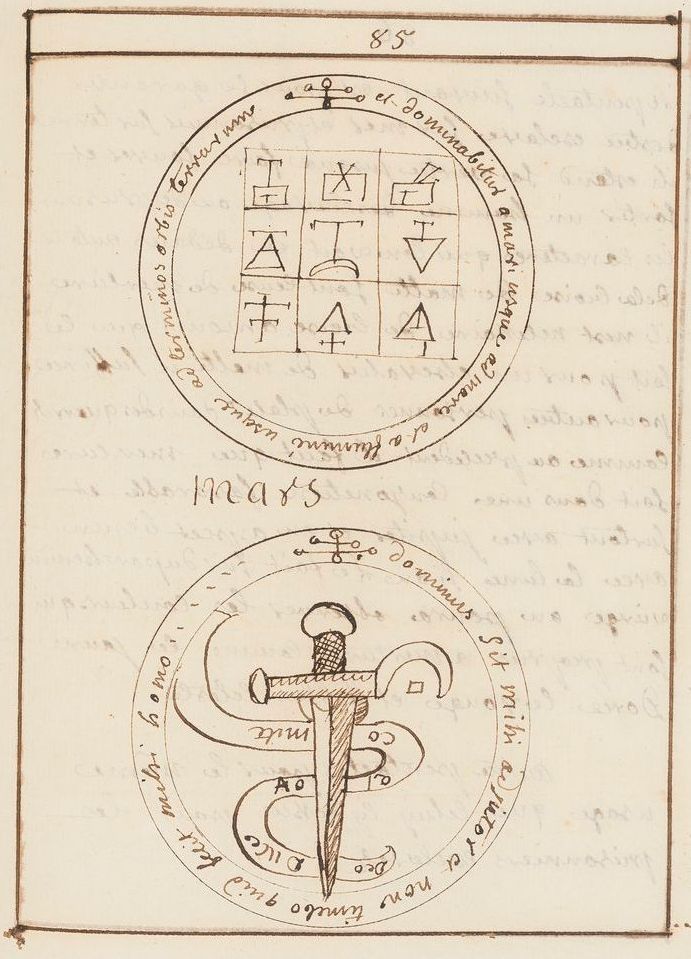 85
et dominabitur amari usque ad mare et a flumine usque ad terminos orbis terrarum
Dominus sit mihi adjutor et non timebo quid mihi homo
mite co
Duce Deo